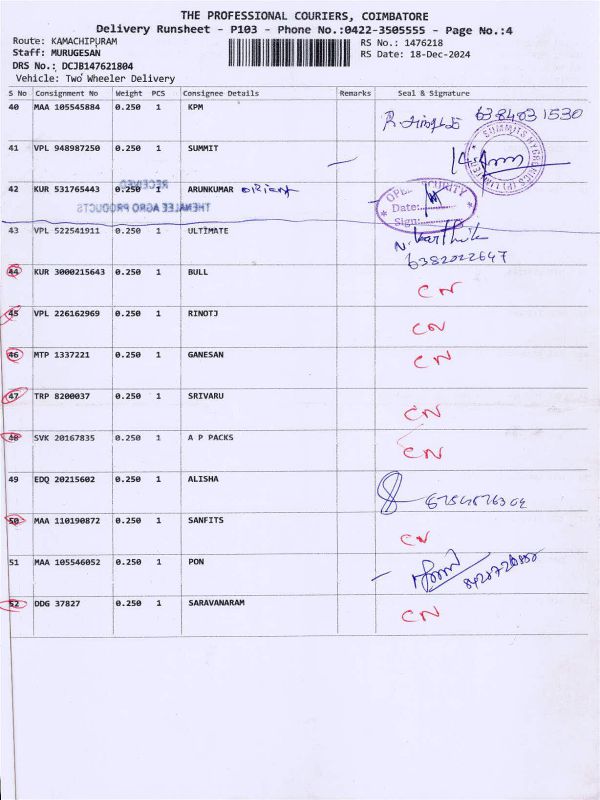 THE PROFESSIONAL COURIERS, COIMBATORE
Delivery Runsheet - P103 - Phone No.:0422-3505555 - Page No.:4
Route: KAMACHIPURAM RS No.: 1476218
Staff: MURUGESAN RS Date: 18-Dec-2024
DRS No.: DCJB147621804
Vehicle: Two Wheeler Delivery
S No Consignment No Weight PCS Consignee Details Remarks Seal & Signature
40 MAA 105545884 0.250 1 KPM 6384031530
41 VPL 948987250 0.250 1 SUMMIT
SUMMITS HYGRONICS (P) LIMITED
RECEIVED
42 KUR 531765443 0.250 1 ARUNKUMAR
THEMALEE AGRO PRODUCTS
SECURITY
Date:
Sign:
43 VPL 522541911 0.250 1 ULTIMATE N. Karthik
6382022647
44 KUR 3000215643 0.250 1 BULL CN
45 VPL 226162969 0.250 1 RINOTJ CN
46 MTP 1337221 0.250 1 GANESAN CN
47 TRP 8200037 0.250 1 SRIVARU CN
48 SVK 20167835 0.250 1 A P PACKS CN
49 EDQ 20215602 0.250 1 ALISHA
50 MAA 110190872 0.250 1 SANFITS CN
51 MAA 105546052 0.250 1 PON
52 DDG 37827 0.250 1 SARAVANARAM CN